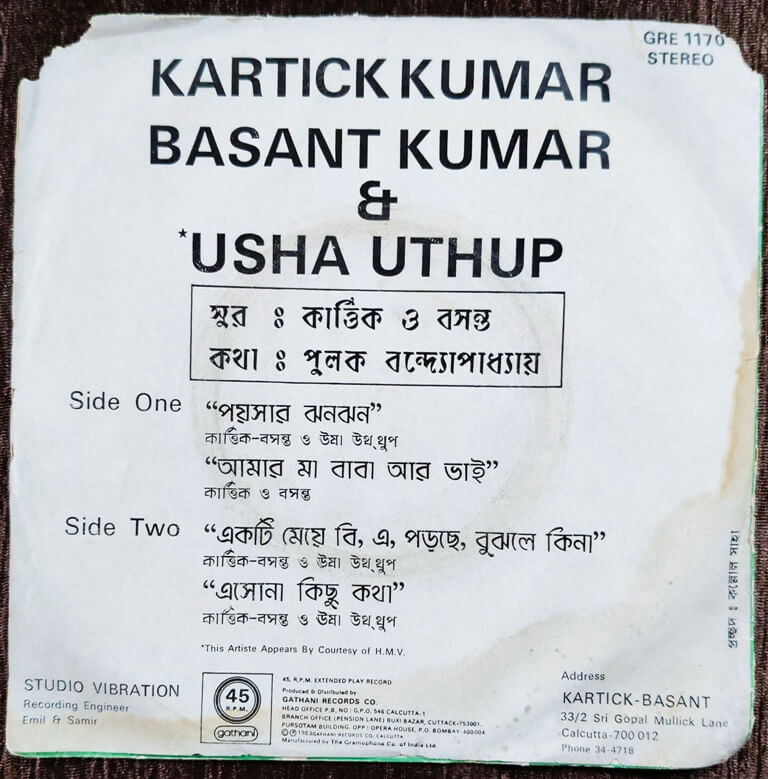 GRE 1170
STEREO
KARTICK KUMAR
BASANT KUMAR
&
*USHA UTHUP
সুর : কার্ত্তিক ও বসন্ত
কথা : পুলক বন্দ্যোপাধ্যায়
Side One
“পয়সার ঝনঝন”
কার্ত্তিক-বসন্ত ও উষা উথ্থুপ
“আমার মা বাবা আর ভাই”
কার্ত্তিক ও বসন্ত
Side Two
“একটি মেয়ে বি, এ, পড়ছে, বুঝলে কিনা”
কার্ত্তিক-বসন্ত ও উষা উথ্থুপ
“এসোনা কিছু কথা”
কার্ত্তিক-বসন্ত ও ঊষা উথ্থুপ
*This Artiste Appears By Courtesy of H.M.V.
প্রচ্ছদ : কল্লোল সাহা
STUDIO VIBRATION
Recording Engineer
Emil & Samir
45
R.P.M.
gathani
45, R.P.M. EXTENDED PLAY RECORD
Produced & Distributed by
GATHANI RECORDS CO.
HEAD OFFICE P.B. NO : G.P.O. 546 CALCUTTA.1
BRANCH OFFICE (PENSION LANE) BUXI BAZAR, CUTTACK-753001.
PURSOTAM BUILDING. OPP : OPERA HOUSE, P.O. BOMBAY. 400004.
GATHANI RECORDS CO. CALCUTTA.
Manufactured by The Gramophone Co. of India Ltd.
Address
KARTICK-BASANT
33/2 Sri Gopal Mullick Lane
Calcutta-700 012
Phone 34-4718